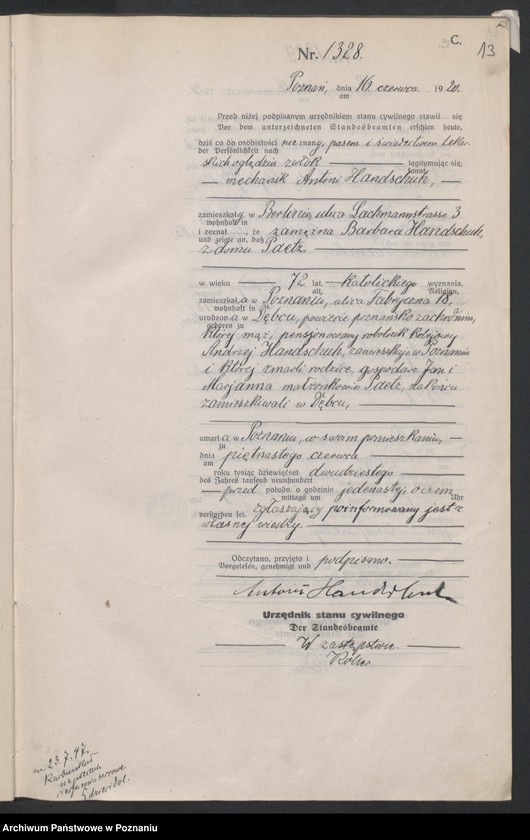 C.
13
Nr. 1328.
Poznań, dnia 16. czerwca 1920.
am
Przed niżej podpisanym urzędnikiem stanu cywilnego stawił się
Vor dem unterzeichneten Standesbeamten erschien heute,
dziś co do osobistości nieznany, pasem i świadectwem lekar-
der Persönlichkeit nach
skich oględzin zwłok legitymując się,
kannt,
mechanik Antoni Handschuh,
zamieszkały w Berlinie, ulica Lachmannstrasse 3
wohnhaft in
i zeznał, że zamężna Barbara Handschuh,
und zeigte an, daß
z domu Paetz,
w wieku 72 lat, katolickiego wyznania,
alt, Religion,
zamieszkała w Poznaniu, ulica Fabryczna 18,
wohnhaft in
urodzona w Dębcu, powiecie poznańsko zachodnim,
geboren zu
której mąż, pensjonowany robotnik kolejowy
Andrzej Handschuh, zamieszkuje w Poznaniu
i której zmarli rodzice, gospodarz Jan i
Marjanna małżonkowie Paetz, na końcu
zamieszkiwali w Dębcu,
umarła w Poznaniu, w swoim pomieszkaniu,
zu
dnia piętnastego czerwca
am
roku tysiąc dziewięćset dwudziestego
des Jahres tausend neunhundert
przed połudn. o godzinie jedenastej,
mittags um Uhr
verstorben sei. Zgłaszający poinformowany jest z
własnej wiedzy.
Odczytano, przyjęto i podpisano.
Vorgelesen, genehmigt und
Antoni Handschuh
Urzędnik stanu cywilnego
Der Standesbeamte
W zastępstwie.
23.7.47.
Archiwum Państwowe w Poznaniu